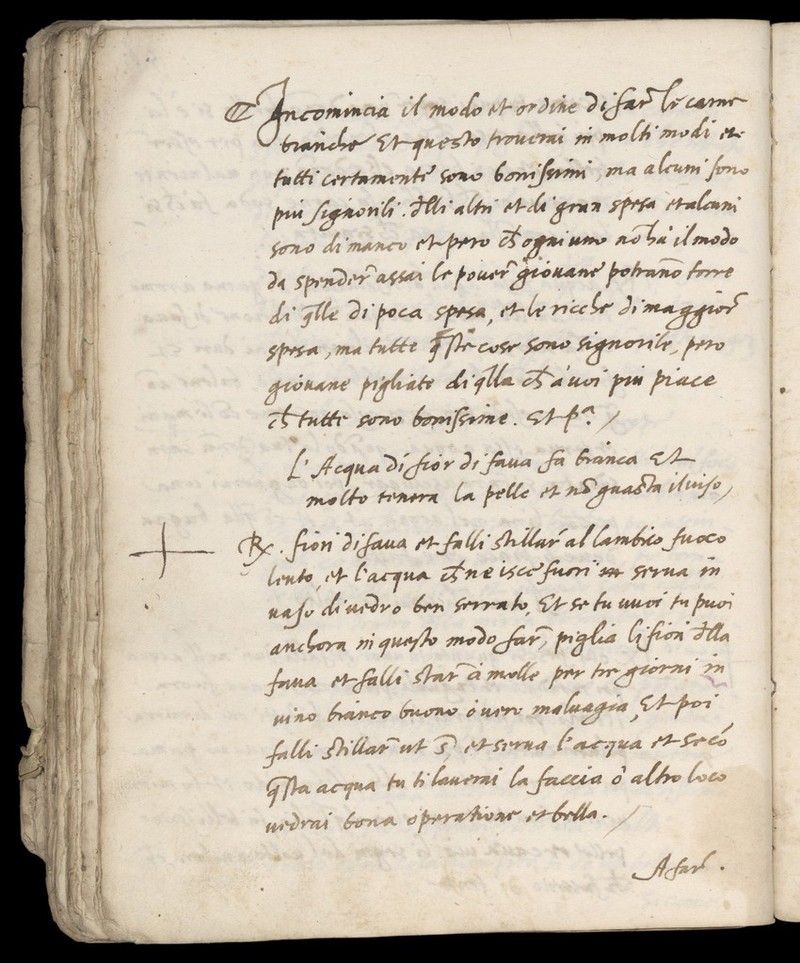 Incomincia il modo et ordine di far̃ le carne
bianche Et questo trouerai in molti modi et
tutti certamente sono bonissimi, ma alcuni sono
piu signorili. d̃lli altri et di gran spesa et alcuni
sono di manco et pero ch̃ ogniuno nõ ha' il modo
da spender̃ assai le pouer̃ giouane potrano torre
di q̃lle di poca spesa, et le ricche di maggior̃
spesa, ma tutte q̃ste cose sono signorile, pero
giouane pigliate di q̃lla ch̃ a' uoi piu piace
ch̃ tutte sono bonissime. Et pª. /
L' Acqua di fior di faua fa bianca Et
molto tenera la pelle et nõ guasta il uiso /
℞. fiori di faua et falli stillar̃ al lambico fuoco
lento, et l'acqua ch̃ ne isce fuori serua in
uaso di uedro ben serrato, Et se tu uuoi tu puoi
anchora in questo modo far̃, piglia li fiori d̃lla
faua et falli star̃ à molle per tre giorni in
uino bianco buono ò uero maluagia, Et poi
falli stillar̃ ut s̃, et serua l'acqua et se cõ
q̃sta acqua tu ti lauerai la faccia ò altro loco
uedrai bona operatione et bella. /
A far̃.